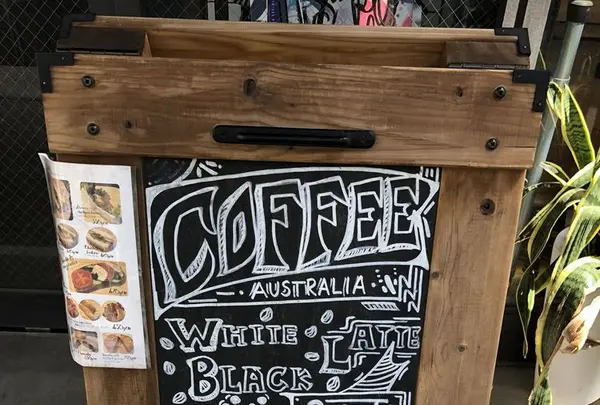 COFFEE
AUSTRALIA
WHITE LATTE
BLACK